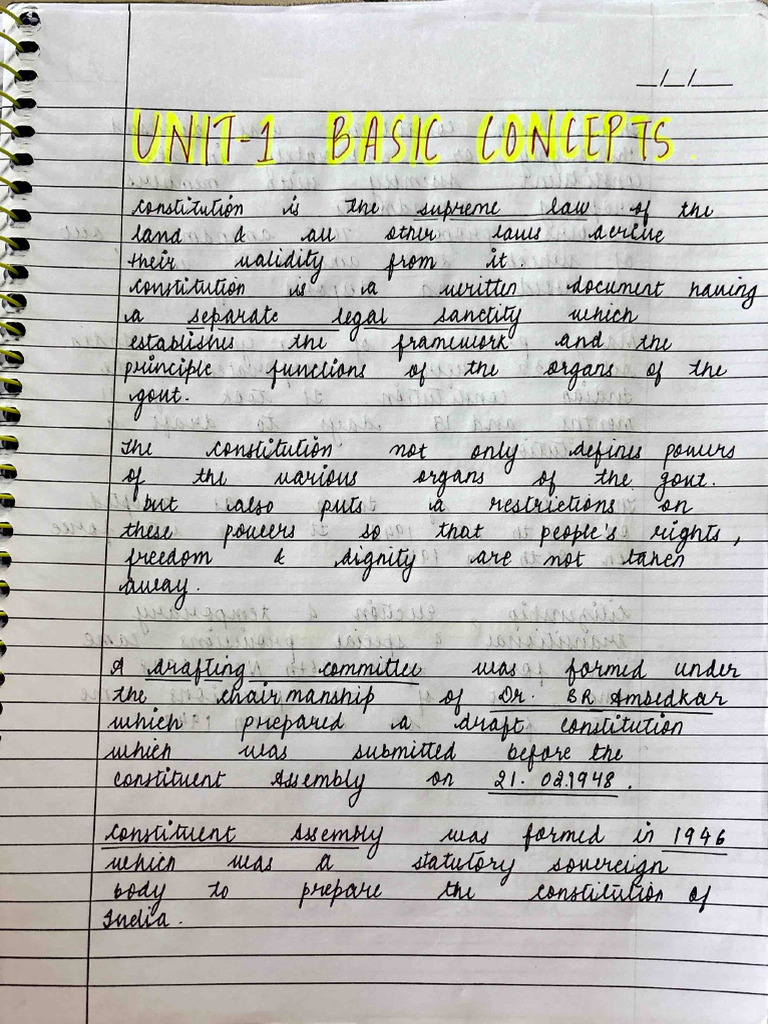 __/__/__
UNIT-1 BASIC CONCEPTS.
constitution is the supreme law of the
land & all other laws derive
their validity from it.
constitution is a written document having
a separate legal sanctity which
establishes the framework and the
principle functions of the organs of the
govt.
The constitution not only defines powers
of the various organs of the govt.
but also puts a restrictions on
these powers so that people's rights,
freedom & dignity are not taken
away.
A drafting committee was formed under
the chairmanship of Dr. BR Ambedkar
which prepared a draft constitution
which was submitted before the
constituent Assembly on 21.02.1948.
Constituent Assembly was formed in 1946
which was a statutory sovereign
body to prepare the constitution of
India.